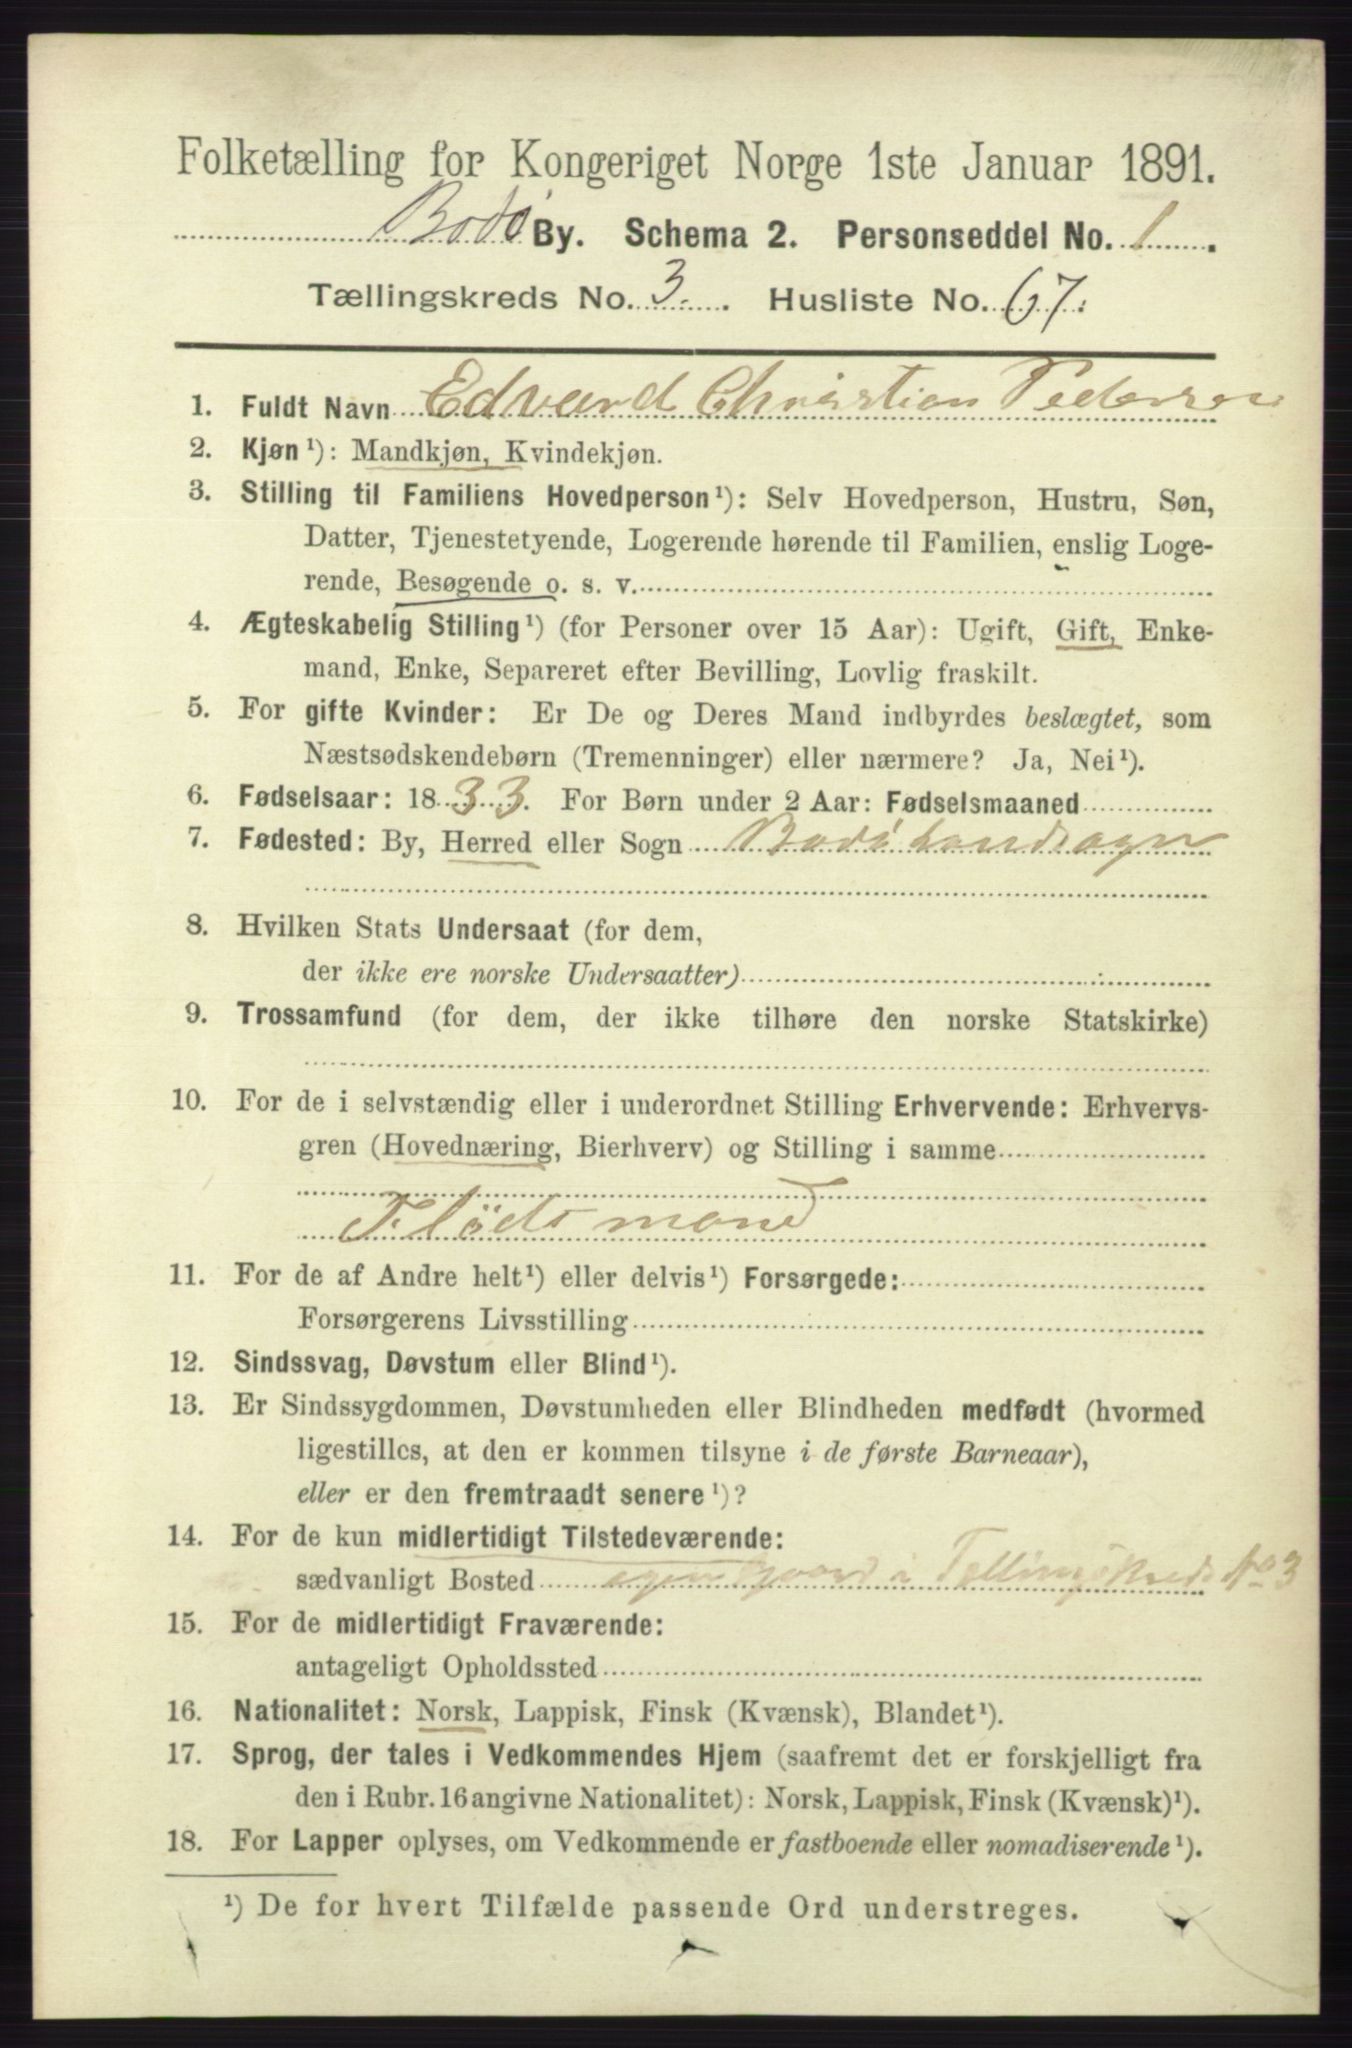 Folketælling for Kongeriget Norge 1ste Januar 1891.
Bodø By. Schema 2. Personseddel No. 1.
Tællingskreds No. 3. Husliste No. 67.
1. Fuldt Navn Edvard Christian Pedersen
2. Kjøn¹): Mandkjøn, Kvindekjøn.
3. Stilling til Familiens Hovedperson¹): Selv Hovedperson, Hustru, Søn,
Datter, Tjenestetyende, Logerende hørende til Familien, enslig Loge-
rende, Besøgende o. s. v.
4. Ægteskabelig Stilling¹) (for Personer over 15 Aar): Ugift, Gift, Enke-
mand, Enke, Separeret efter Bevilling, Lovlig fraskilt.
5. For gifte Kvinder: Er De og Deres Mand indbyrdes beslægtet, som
Næstsødskendebørn (Tremenninger) eller nærmere? Ja, Nei¹).
6. Fødselsaar: 1833. For Børn under 2 Aar: Fødselsmaaned
7. Fødested: By, Herred eller Sogn Bodø Landsogn
8. Hvilken Stats Undersaat (for dem,
der ikke ere norske Undersaatter)
9. Trossamfund (for dem, der ikke tilhøre den norske Statskirke)
10. For de i selvstændig eller i underordnet Stilling Erhvervende: Erhvervs-
gren (Hovednæring, Bierhverv) og Stilling i samme
Flödsmand
11. For de af Andre helt¹) eller delvis¹) Forsørgede:
Forsørgerens Livsstilling
12. Sindssvag, Døvstum eller Blind¹).
13. Er Sindssygdommen, Døvstumheden eller Blindheden medfødt (hvormed
ligestilles, at den er kommen tilsyne i de første Barneaar),
eller er den fremtraadt senere¹)?
14. For de kun midlertidigt Tilstedeværende:
sædvanligt Bosted egen Gaard i Tællingskreds No 3
15. For de midlertidigt Fraværende:
antageligt Opholdssted
16. Nationalitet: Norsk, Lappisk, Finsk (Kvænsk), Blandet¹).
17. Sprog, der tales i Vedkommendes Hjem (saafremt det er forskjelligt fra
den i Rubr. 16 angivne Nationalitet): Norsk, Lappisk, Finsk (Kvænsk)¹).
18. For Lapper oplyses, om Vedkommende er fastboende eller nomadiserende¹).
¹) De for hvert Tilfælde passende Ord understreges.